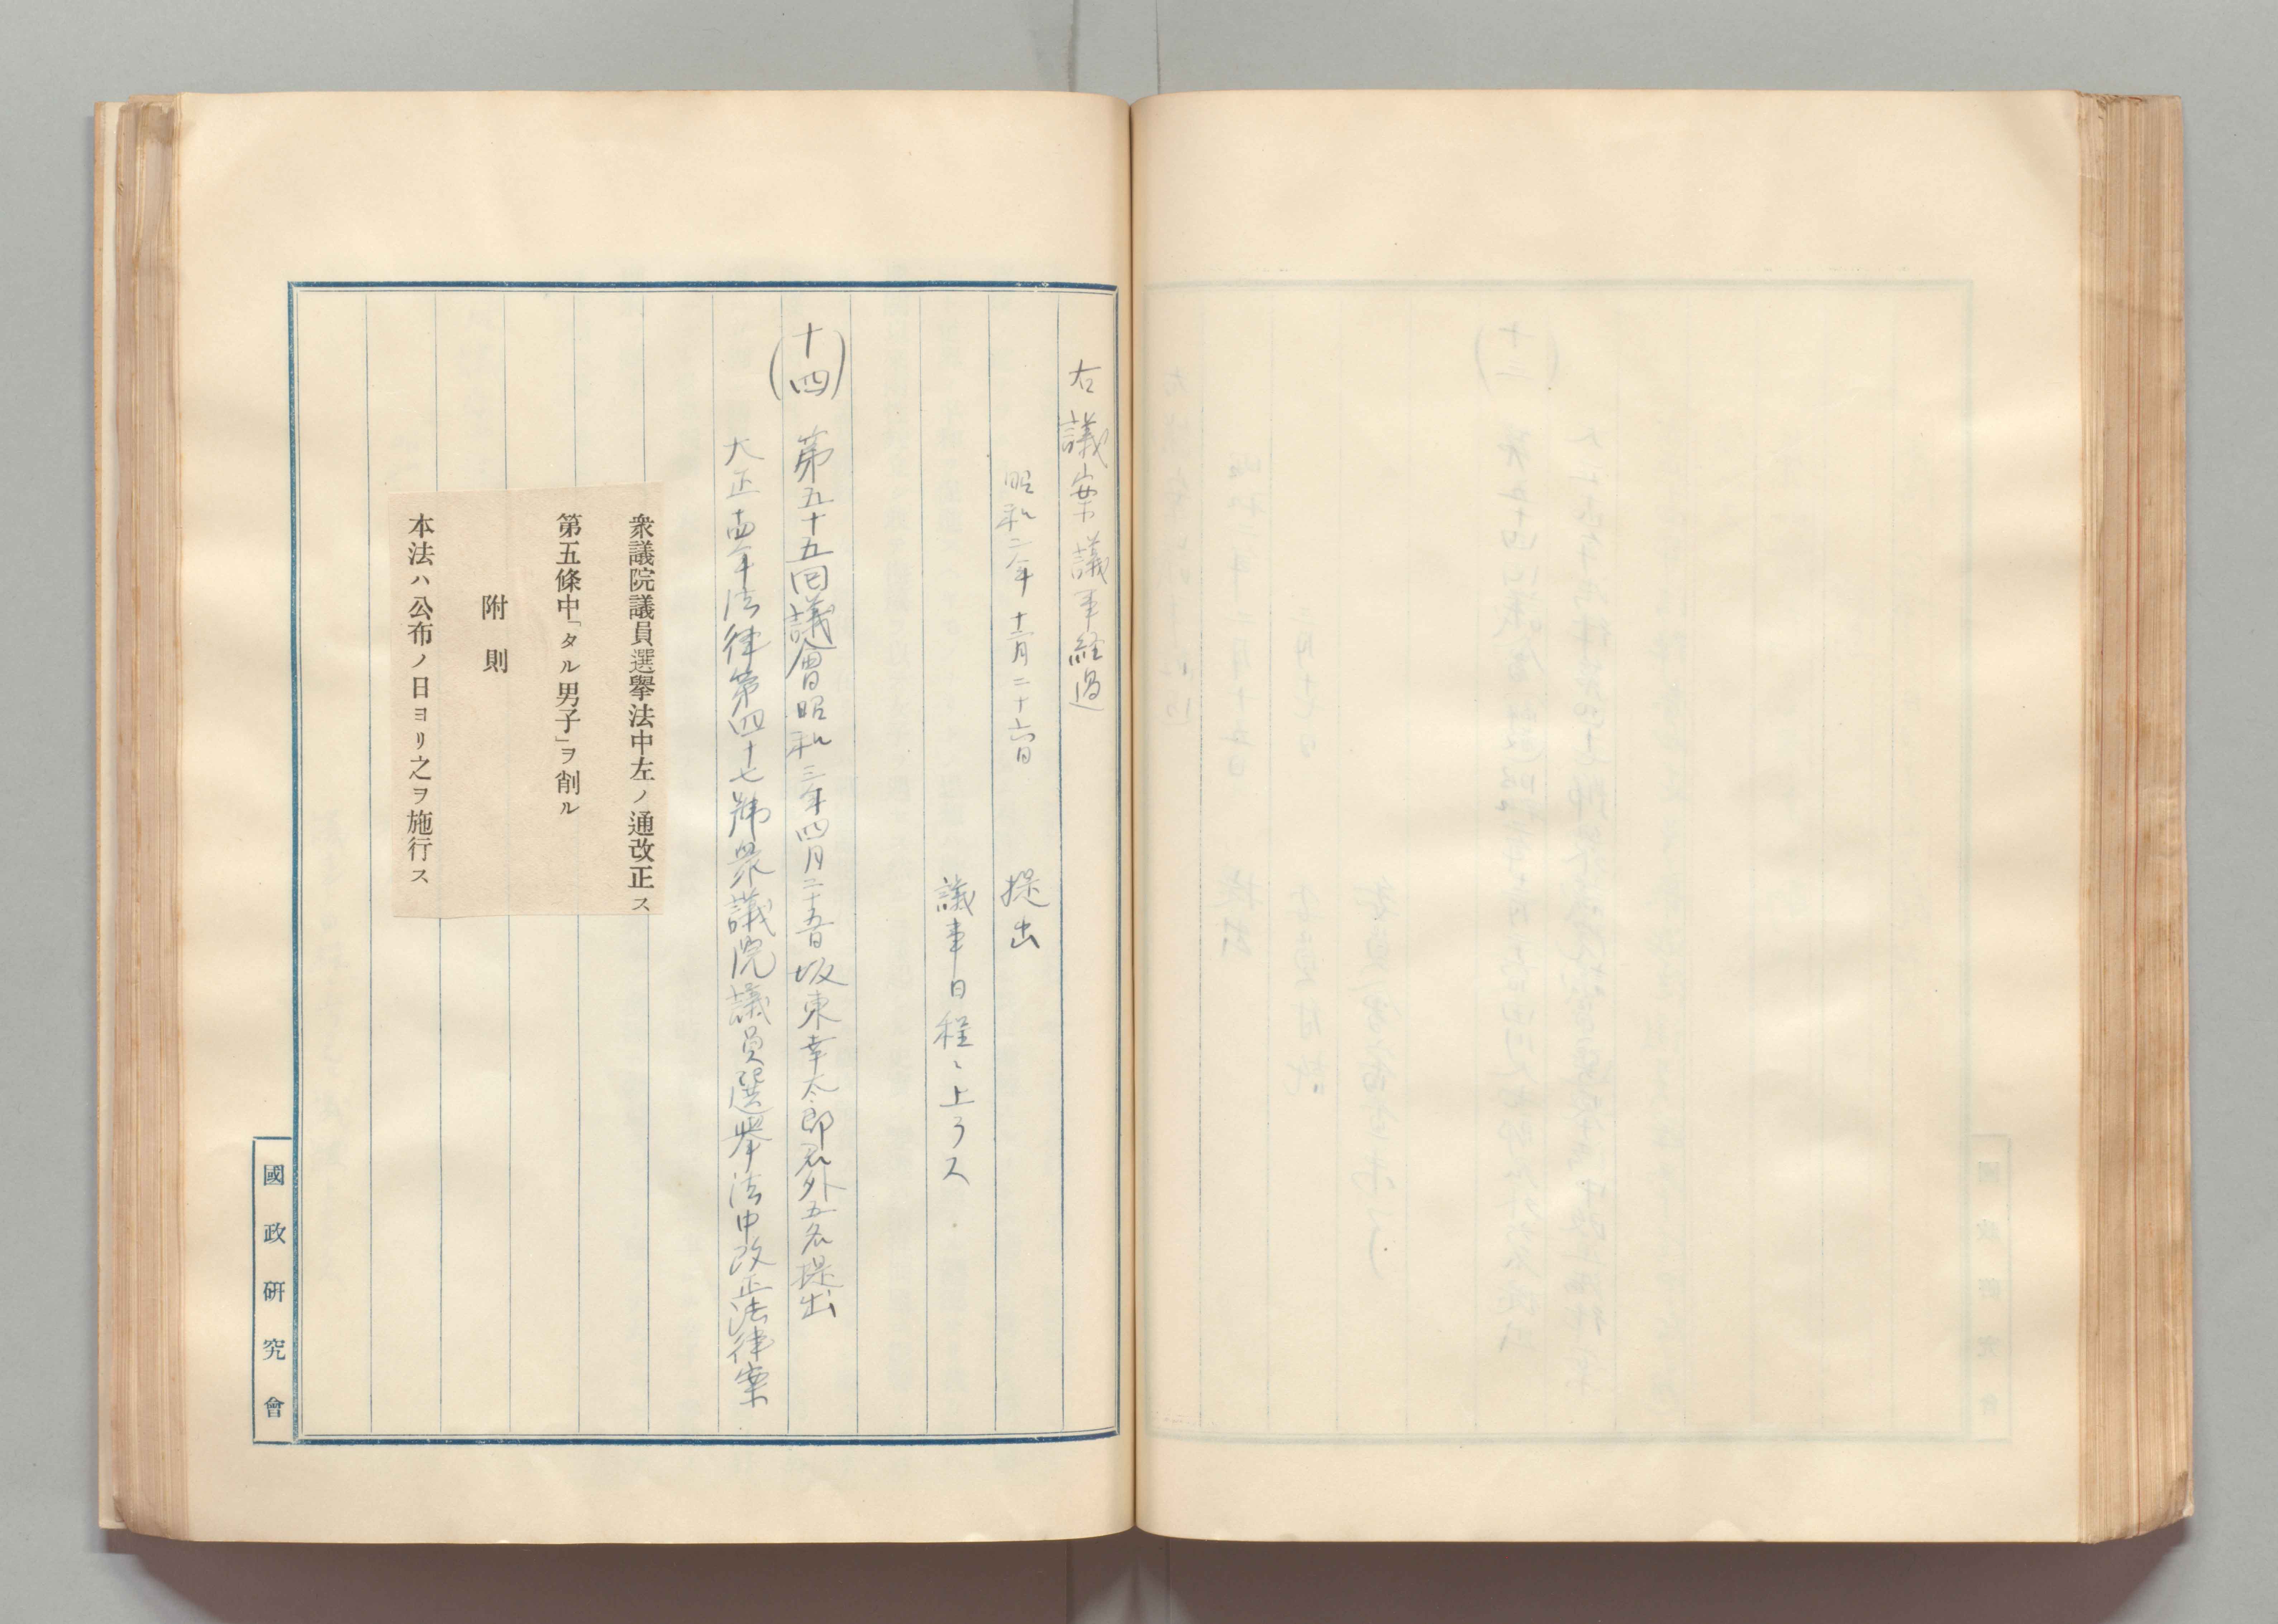 右議案議事経過
昭和二年十二月二十六日 提出
議事日程ニ上ラス
(十四) 第五十五回議會昭和三年四月二十五日坂東幸太郎君外五名提出
大正十四年法律第四十七號衆議院議員選擧法中改正法律案
衆議院議員選擧法中左ノ通改正ス
第五條中「タル男子」ヲ削ル
附則
本法ハ公布ノ日ヨリ之ヲ施行ス
國政研究會